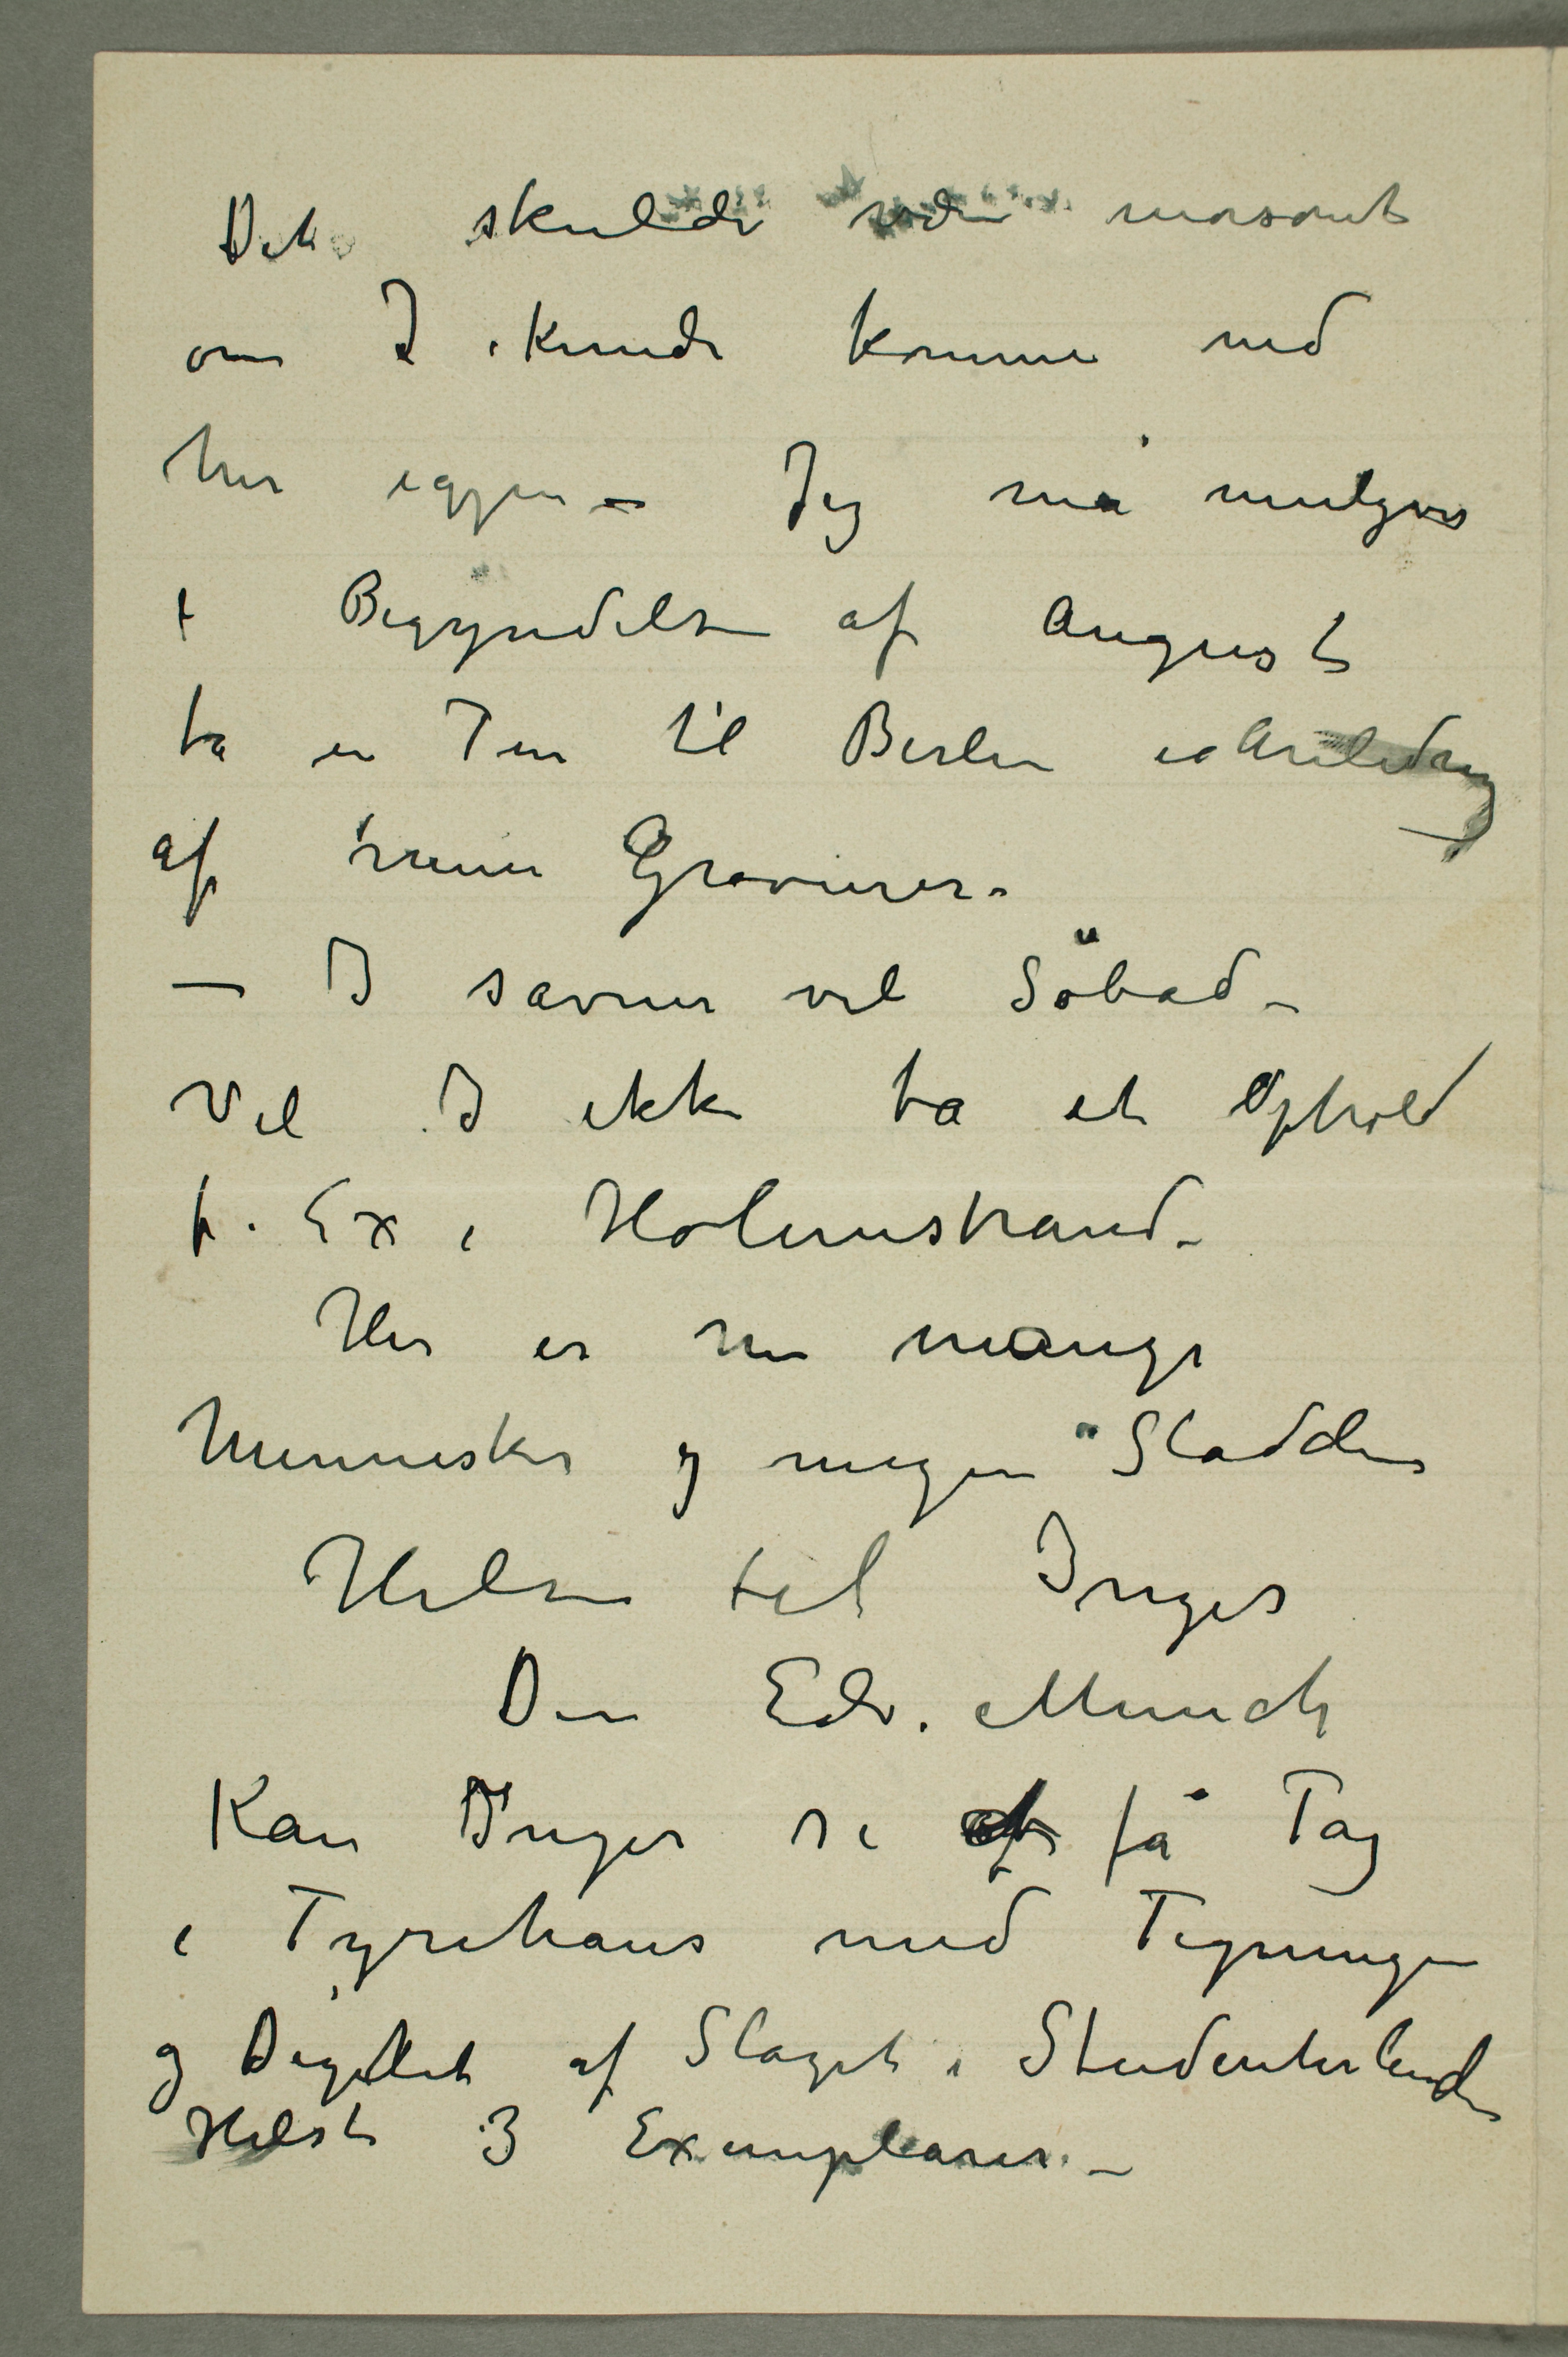 Det skulde være morsomt
om I kunde komme ned
her igjen – Jeg må muligvis
i Begyndelsen af August
ta en Tur til Berlin i Anledning
af mine Gravurer.
— I savner vel Söbad –
Vil I ikke ta et Ophold
f. Ex i Holmestrand –
Her er nu mange
Mennesker og megen Sladder
Hilsen til Inger
Din Edv. Munch
Kan Inger se at få Tag
i Tyrihans med Tegningen
og Digtet af Slaget i Studenterlunden
Helst 3 Exemplarer. –